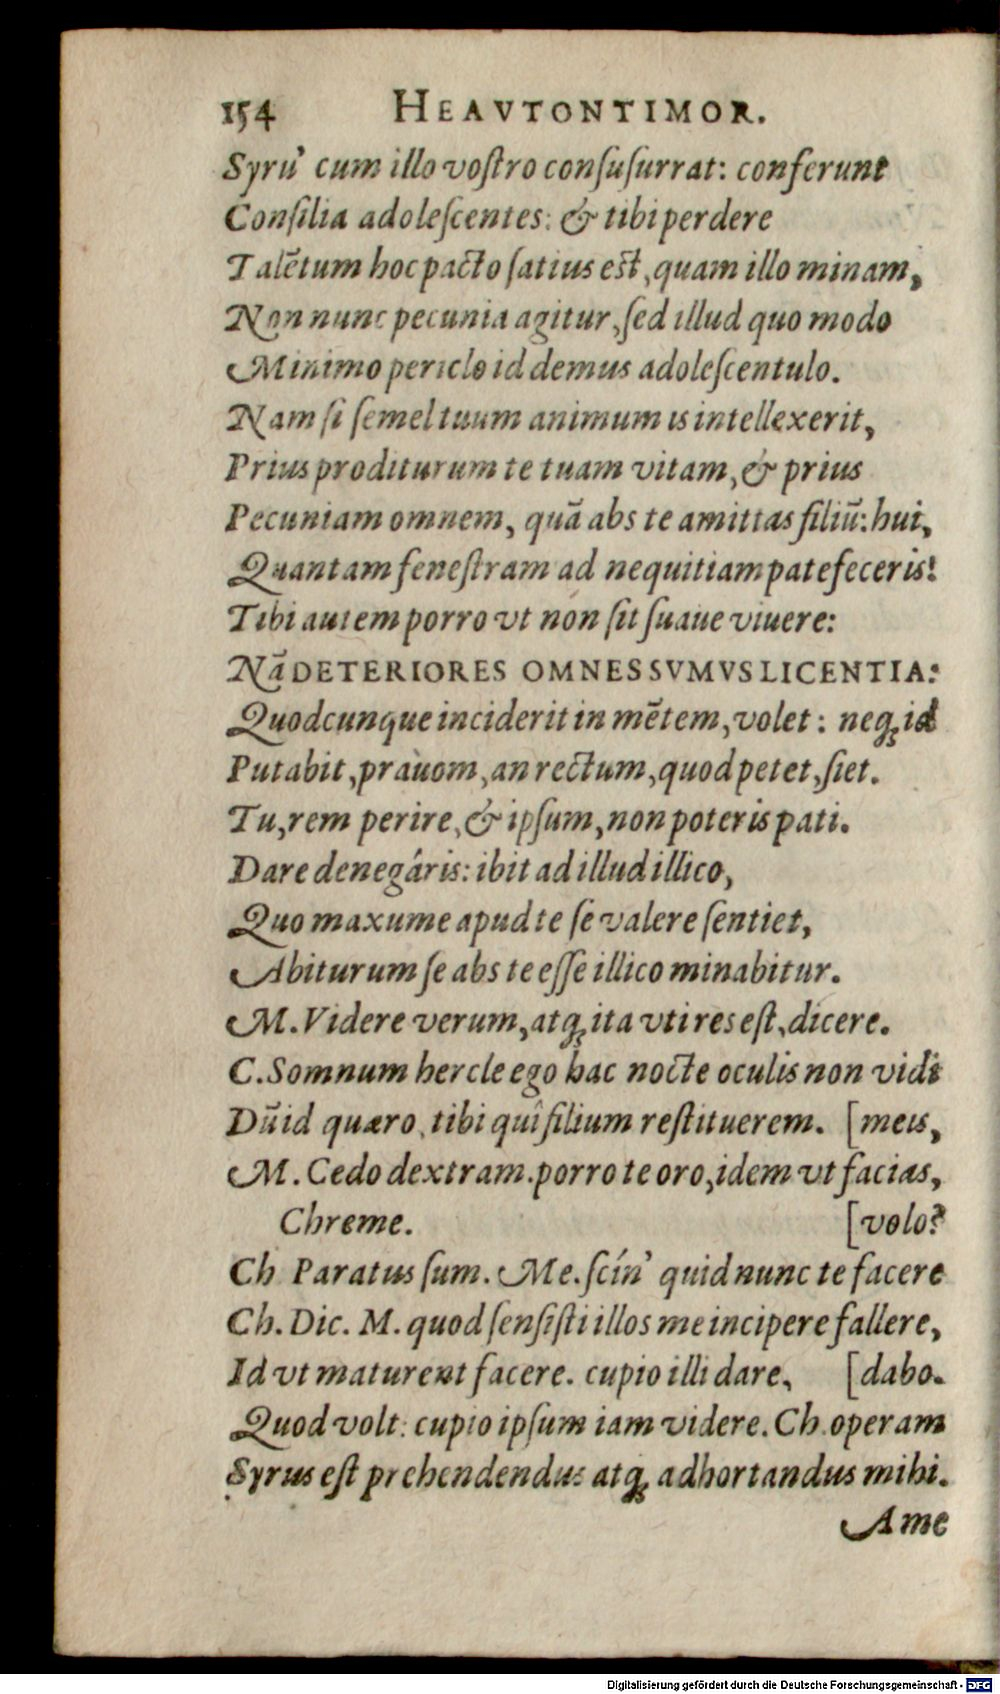 154 HEAVTONTIMOR.
Syru' cum illo voſtro conſuſurrat: conferunt
Conſilia adoleſcentes: & tibi perdere
Talētum hoc pacto ſatius eſt, quam illo minam,
Non nunc pecunia agitur, ſed illud quo modo
Minimo periclo id demus adoleſcentulo.
Nam ſi ſemel tuum animum is intellexerit,
Prius proditurum te tuam vitam, & prius
Pecuniam omnem, quā abs te amittas filiū: hui,
Quantam feneſtram ad nequitiam patefeceris!
Tibi autem porro vt non ſit ſuaue viuere:
Nā DETERIORES OMNES SVMVS LICENTIA:
Quodcunque inciderit in mētem, volet: neq; id
Putabit, prauom, an rectum, quod petet, ſiet.
Tu, rem perire, & ipſum, non poteris pati.
Dare denegáris: ibit ad illud illico,
Quo maxume apud te ſe valere ſentiet,
Abiturum ſe abs te eſſe illico minabitur.
M. Videre verum, atq; ita vti res eſt, dicere.
C. Somnum hercle ego hac nocte oculis non vidi
Dū id quæro, tibi quî filium reſtituerem. [meis,
M. Cedo dextram. porro te oro, idem vt facias,
Chreme. [volo?
Ch Paratus ſum. Me. ſcín' quid nunc te facere
Ch. Dic. M. quod ſenſiſti illos me incipere fallere,
Id vt maturent facere. cupio illi dare, [dabo.
Quod volt: cupio ipſum iam videre. Ch. operam
Syrus eſt prehendendus atq; adhortandus mihi.
A me
Digitalisierung gefördert durch die Deutsche Forschungsgemeinschaft - DFG